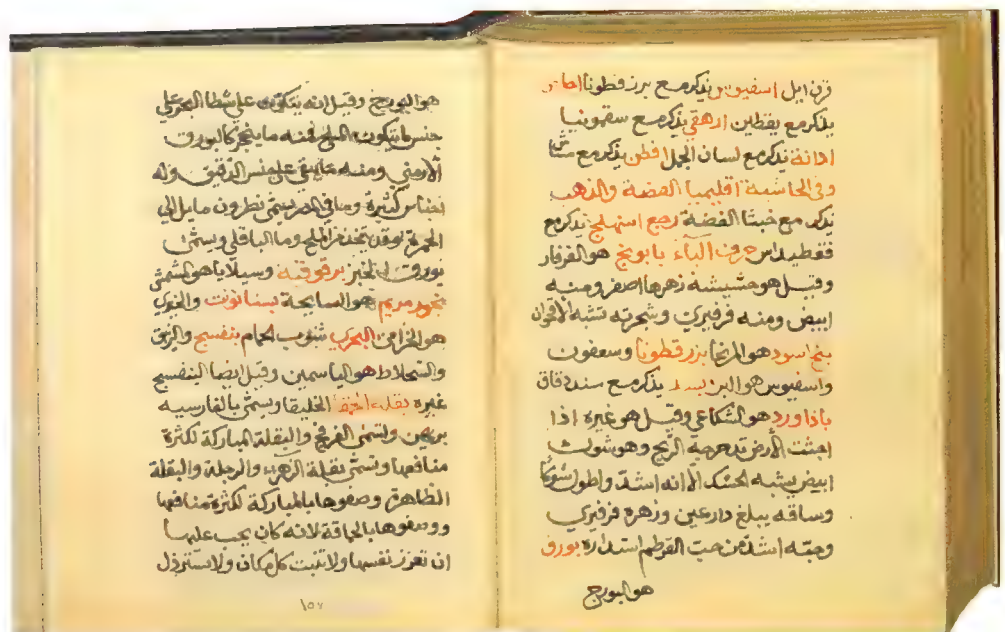 قرن ايل اسفيوس يذكر مع بزر قطونا
يذكر مع يقطين ارهقي يذكر مع سقمونيا
اذانة يذكر مع لسان الجمل افطن يذكر مع
وفي الحاشية اقليميا الفضة والذهب
يذكر مع خبث الفضة رجع اسهلج يذكر مع
حرف الباء بابونج هو القرفار
وقيل هو حشيشة زهرها اصفر ومنه
ابيض ومنه فرفيري وشجرته تشبه الأقحوان
بنج اسود هو المرنخا بزر قطونا وسعفون
واسفيوس هو البزر بسد يذكر مع سنددقاق
باذاورد هو الشكاعي وقيل هو غيره اذا
اجتثت الأرض تدحرجه الريح وهو شوك
ابيض يشبه الحسك الا انه اشد واطول شوكا
وساقه يبلغ ذراعين وزهره فرفيري
وحبه اشد من حب القرطم استدارة بورق
هو البورج
هو البورج وقيل انه يتكون على شطا البحر على
جنس ما يتكون الملح فمنه ما ينجر كالبورق
الأرمني ومنه ما يبقى على جنس الدقيق وله
اجناس كثيرة وما في المصر يسمى نطرون مايل الى
الحمرة وقد يتخذ من الملح وما الباقلي ويسمى
بورق الخبز برقوقية وسيلايا هو المشمش
بخور مريم هو السايحة بستانوت والغبري
هو الخزامى البحري شنوب الحمام بنفسج والزيتي
والسجلاط هو الياسمين وقيل ايضا البنفسج
غيره بقلة الحمقا الخليقا ويسمى بالفارسيه
بربهين وتسمى الفرفج والبقلة المباركة لكثرة
منافعها وتسمى بقلة الزهراء والرجلة والبقلة
الظاهرة وصفوها بالمباركة لكثرة منافعها
ووصفوها بالحماقة لانه كان يجب عليها
ان تعزز نفسها ولا تنبت كل مكان ولا تسترذل
١٥٧